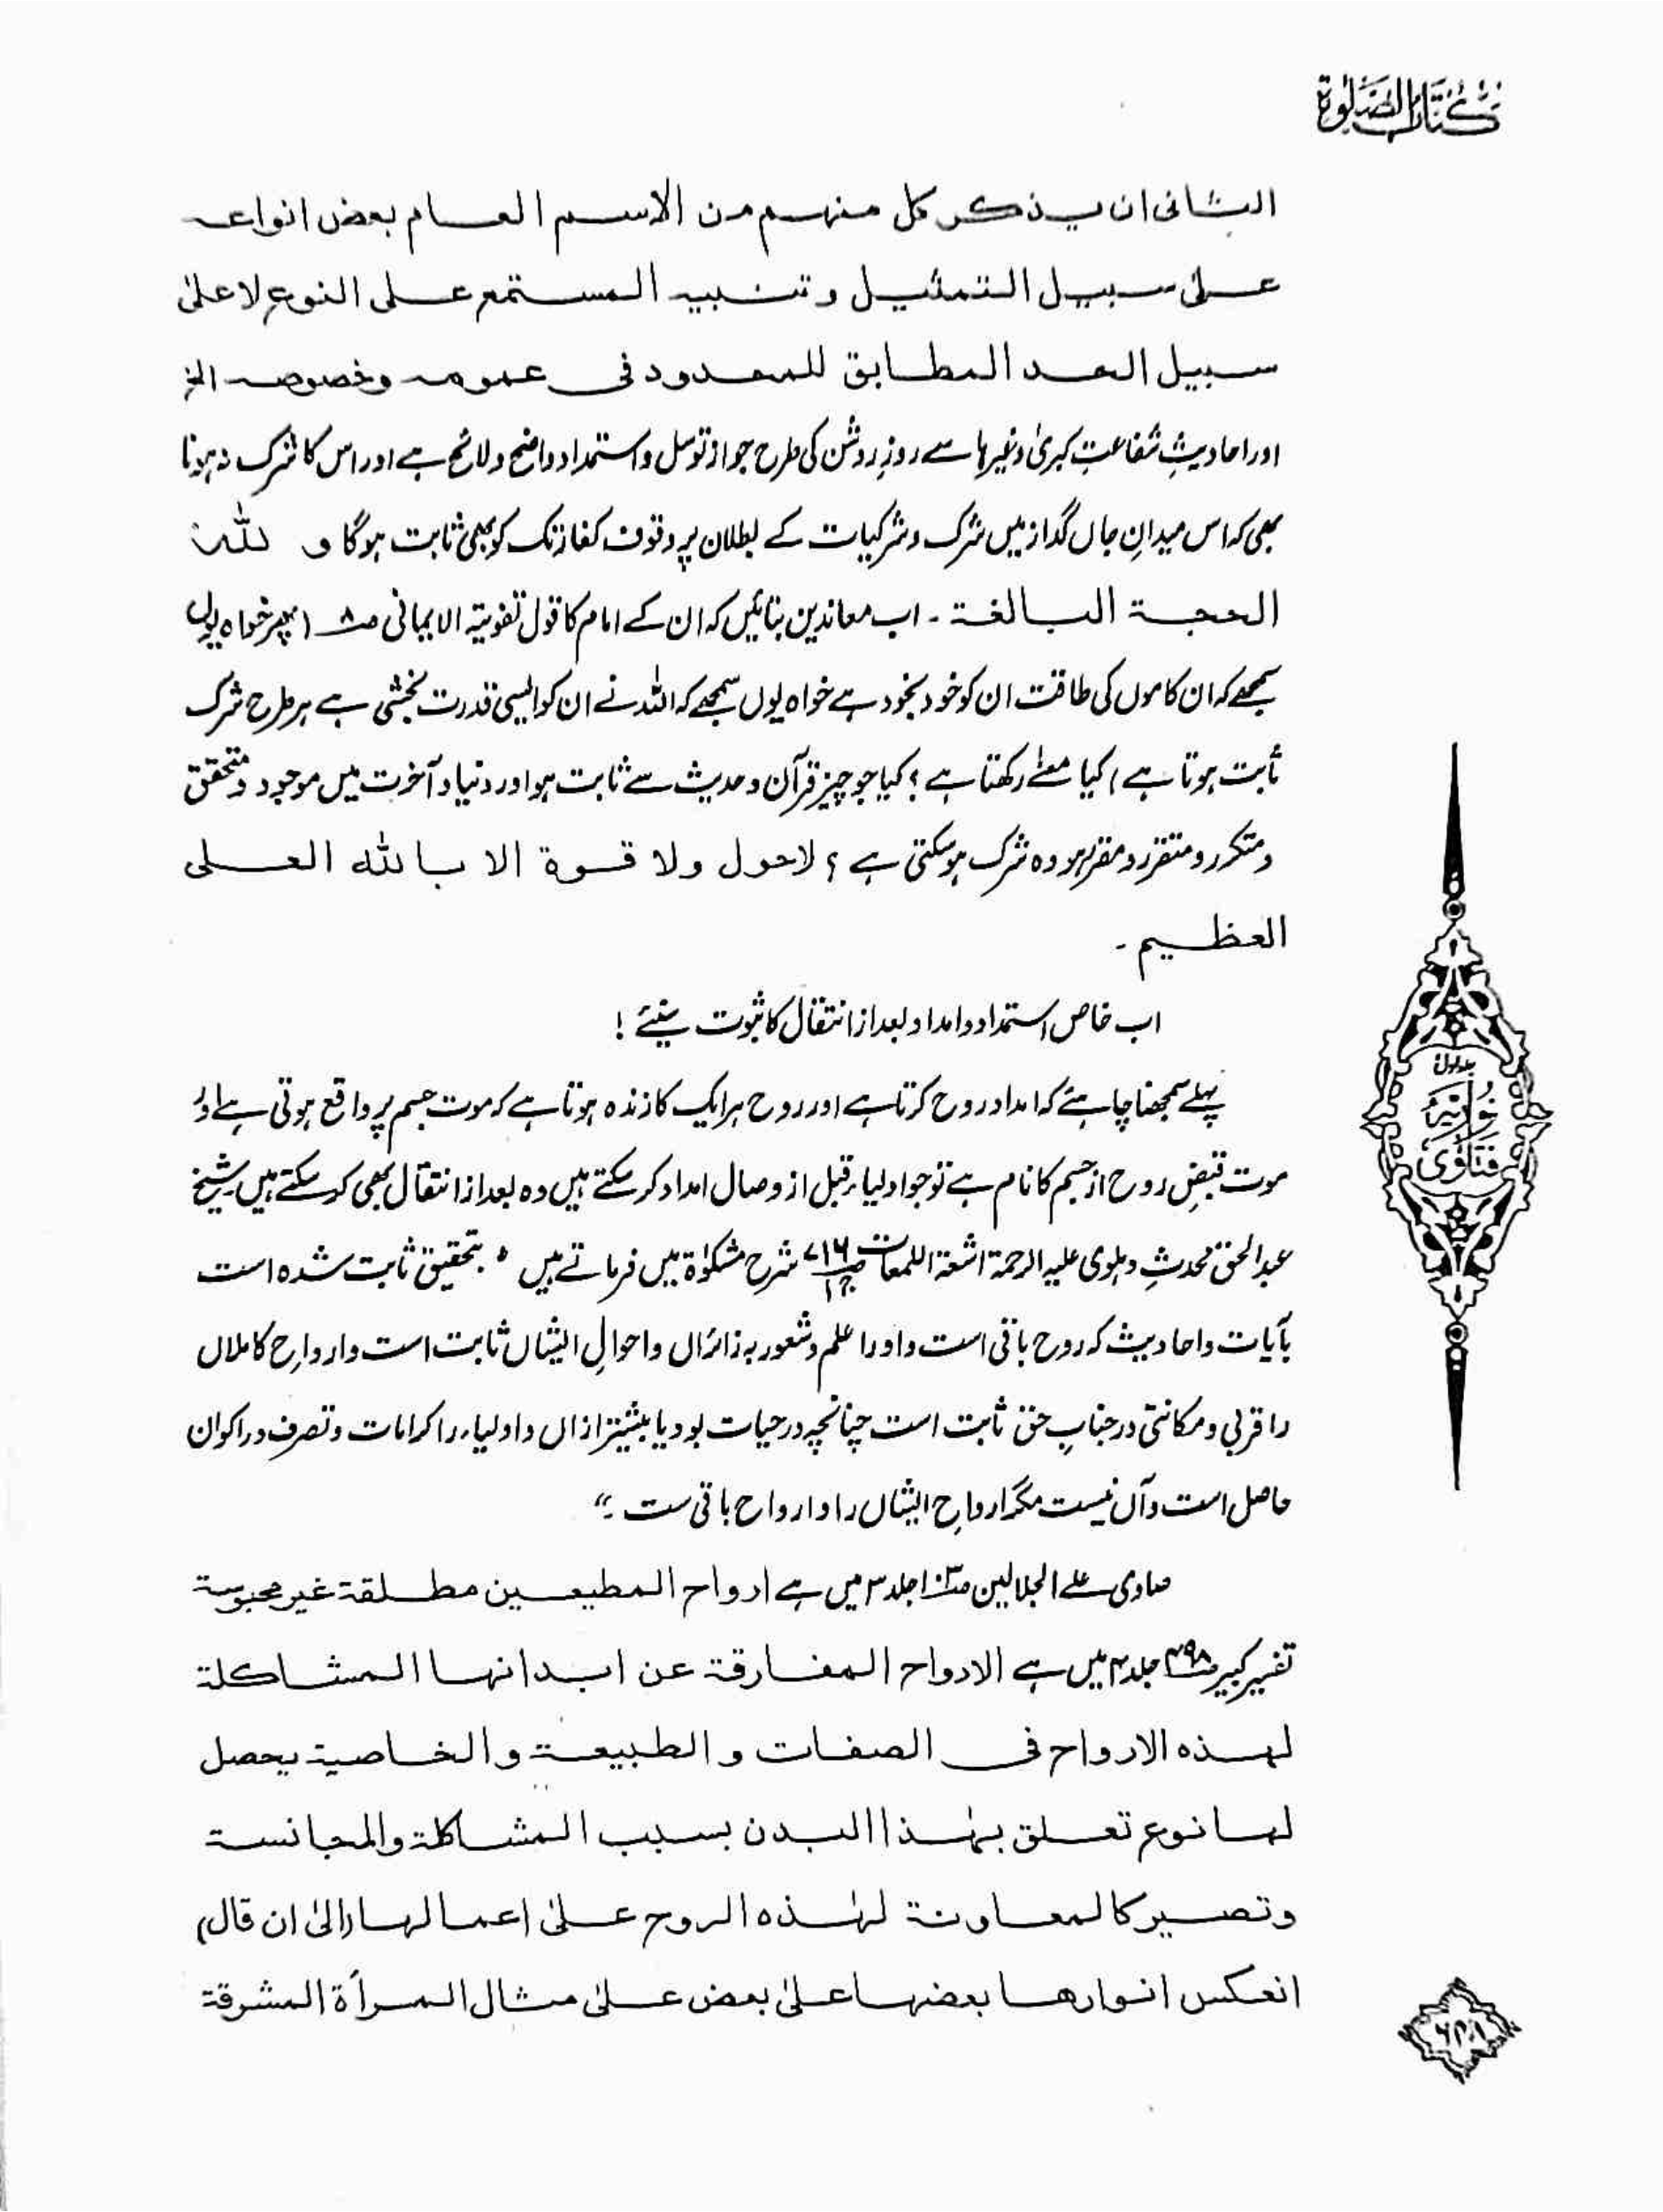 كتاب الصلوة
الثانی ان یذکر کل منہم من الاسم العام بعض انواعہ
علیٰ سبیل التمثیل و تنبیہ المستمع علی النوع لا علیٰ
سبیل الحد المطابق للمحدود فی عمومہ وخصوصہ الخ
اور احادیثِ شفاعتِ کبریٰ وغیرہا سے روزِ روشن کی طرح جوازِ توسل و استمداد واضح و لائح ہے اور اس کا شرک نہ ہونا
بھی کہ اس میدانِ جاں گداز میں شرک و شرکیات کے بطلان پر وقوف کفار تک کو بھی ثابت ہوگا و للہ
الحجۃ البالغۃ ۔ اب معاندین بتائیں کہ ان کے امام کا قول تفویۃ الایمانی ص۸ (پھر خواہ یوں
سمجھے کہ ان کاموں کی طاقت ان کو خود بخود ہے خواہ یوں سمجھے کہ اللہ نے ان کو ایسی قدرت بخشی ہے ہر طرح شرک
ثابت ہوتا ہے) کیا معنے رکھتا ہے ؟ کیا جو چیز قرآن و حدیث سے ثابت ہو اور دنیا و آخرت میں موجود و متحقق
و متکرر و متقرر و مقرر ہو وہ شرک ہو سکتی ہے ؟ لاحول ولا قوۃ الا باللہ العلی
العظیم ۔
اب خاص استمداد و امداد بعد از انتقال کا ثبوت سنیئے !
پہلے سمجھنا چاہئے کہ امداد روح کرتا ہے اور روح ہر ایک کا زندہ ہوتا ہے کہ موت جسم پر واقع ہوتی ہے اور
موت قبضِ روح از جسم کا نام ہے تو جو اولیاء قبل از وصال امداد کر سکتے ہیں وہ بعد از انتقال بھی کر سکتے ہیں شیخ
عبدالحق محدثِ دہلوی علیہ الرحمۃ اشعۃ اللمعات ص۷۱۶ ج۱ شرح مشکوٰۃ میں فرماتے ہیں " بتحقیق ثابت شدہ است
بآیات و احادیث کہ روح باقی است و اورا علم و شعور بہ زائراں و احوالِ ایشاں ثابت است و ارواحِ کاملاں
را قربی و مکانتی در جنابِ حق ثابت است چنانچہ در حیات بود یا بیشتر ازاں و اولیاء را کرامات و تصرف در اکوان
حاصل است و آں نیست مگر ارواحِ ایشاں را و ارواح باقی ست ۔"
صاوی علے الجلالین جلد ۳ میں ہے ارواح المطیعین مطلقۃ غیر محبوسۃ
تفسیر کبیر ص۴۹۸ جلد ۴ میں ہے الارواح المفارقۃ عن ابدانہا المشاکلۃ
لہذہ الارواح فی الصفات و الطبیعۃ و الخاصیۃ یحصل
لہا نوع تعلق بہٰذا البدن بسبب المشاکلۃ والمجانسۃ
وتصیر کالمعاونۃ لہٰذہ الروح علیٰ اعمالہا (الیٰ ان قال)
انعکس انوارھا بعضہا علیٰ بعض علیٰ مثال المرأۃ المشرقۃ
جلد اول
فتاوی نوریہ
۶۲۸